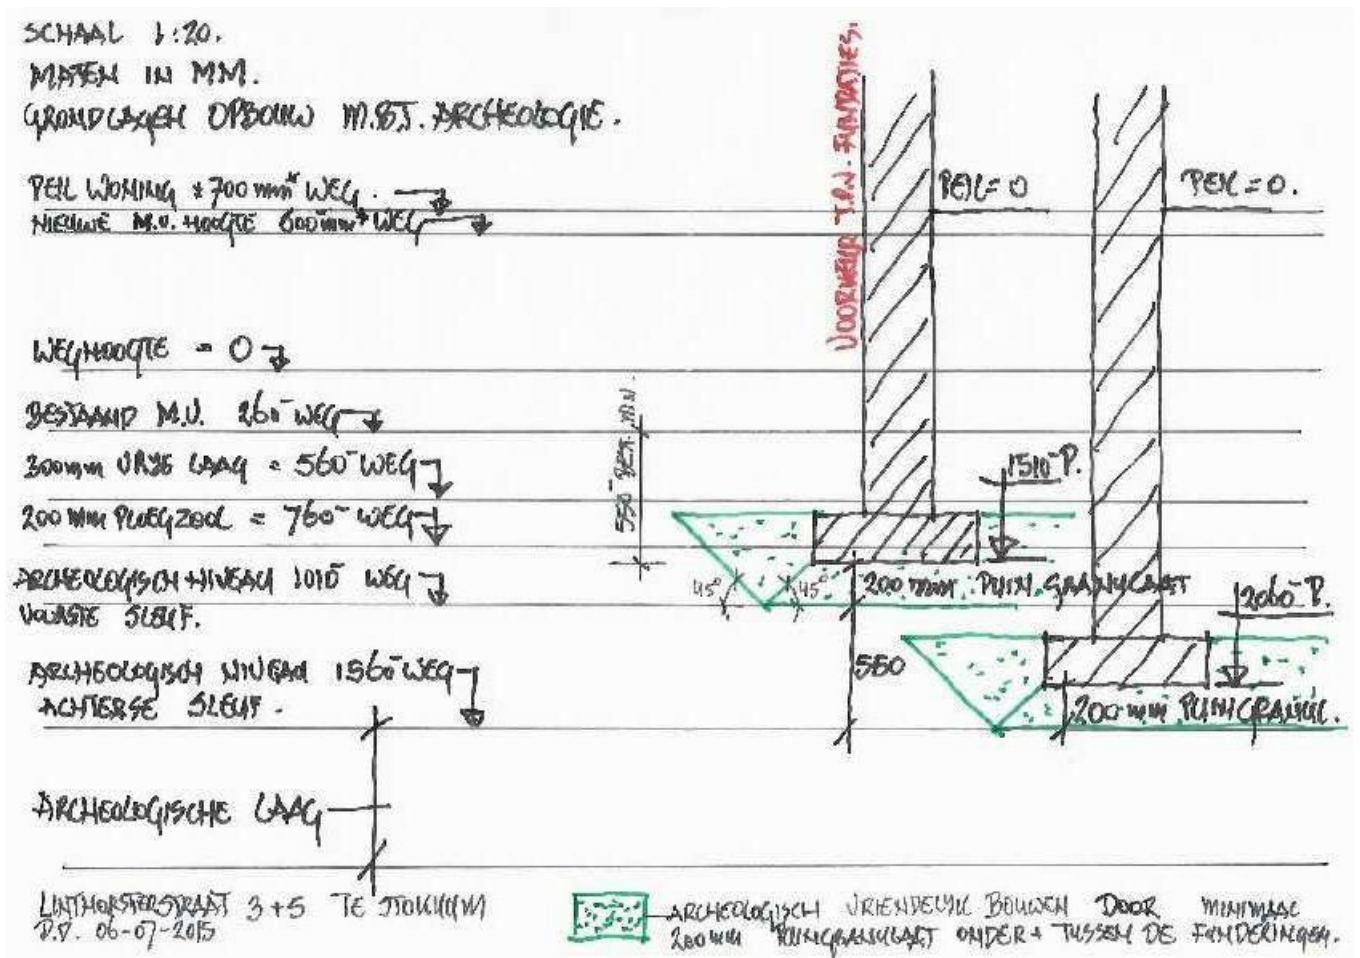 SCHAAL 1:20.
MATEN IN MM.
GRONDLAGEN OPBOUW M.B.T. ARCHEOLOGIE.
PEIL WONING + 700 mm+ WEG.
NIEUWE M.V. HOOGTE 600mm+ WEG
WEGHOOGTE = 0
BESTAAND M.V. 260- WEG
300mm VRIJE LAAG = 560- WEG
200 MM PLOEGZOOL = 760- WEG
ARCHEOLOGISCH NIVEAU 1010- WEG
VOORSTE SLEUF.
ARCHEOLOGISCH NIVEAU 1560- WEG
ACHTERSE SLEUF.
ARCHEOLOGISCHE LAAG
VOORKEUR T.P.V. FUNDATIES.
PEIL = 0
PEIL = 0.
550- BEST. M.V.
1510- P.
45°
45°
200 mm PUIN GRANULAAT
2060- P.
550
200 mm PUINGRANUL.
LINTHORSTERSTRAAT 3+5 TE STOKKUM
D.D. 06-07-2015
ARCHEOLOGISCH VRIENDELIJK BOUWEN DOOR MINIMAAL
200mm PUINGRANULAAT ONDER + TUSSEN DE FUNDERINGEN.